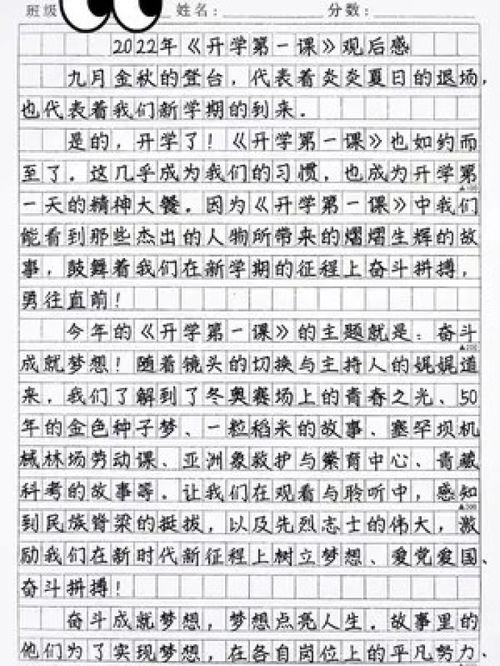 班级 姓名：____ 分数：____
2022年《开学第一课》观后感
九月金秋的登台，代表着炎炎夏日的退场，
也代表着我们新学期的到来．
是的，开学了！《开学第一课》也如约而
至了．这几乎成为我们的习惯，也成为开学第
一天的精神大餐．因为《开学第一课》中我们
能看到那些杰出的人物所带来的熠熠生辉的故
事，鼓舞着我们在新学期的征程上奋斗拼搏，
勇往直前！
今年的《开学第一课》的主题就是：奋斗
成就梦想！随着镜头的切换与主持人的娓娓道
来，我们了解到了冬奥赛场上的青春之光、50
年的金色种子梦、一粒稻米的故事、塞罕坝机
械林场劳动课、亚洲象救护与繁育中心、青藏
科考的故事等．让我们在观看与聆听中，感知
到民族脊梁的挺拔，以及先烈志士的伟大，激
励我们在新时代新征程上树立梦想、爱党爱国、
奋斗拼搏！
奋斗成就梦想，梦想点亮人生．故事里的
他们为了实现梦想，在各自岗位上的平凡努力、